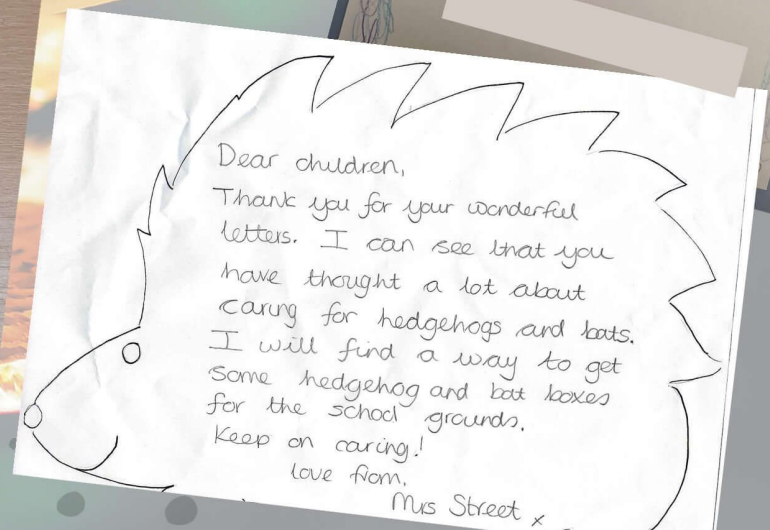 Dear children,
Thank you for your wonderful
letters. I can see that you
have thought a lot about
caring for hedgehogs and bats.
I will find a way to get
some hedgehog and bat boxes
for the school grounds.
Keep on caring!
love from,
Mrs Street x